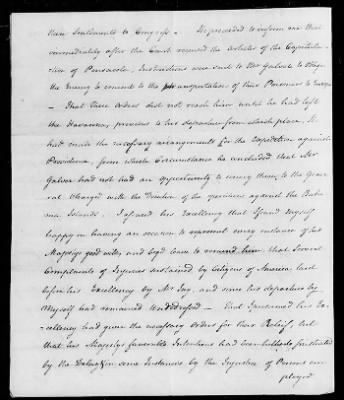 their Sentiments to Congress — He proceeded to inform me that
immediately after the Court received the Articles of the Capitula-
tion of Pensacola, Instructions were sent to Mr Galvez to
the Enemy to consent to the transportation of their Prisoners to Europe
— That these orders did not reach him until he had left
the Havannah, previous to his departure from which place, He
had made the necessary arrangements for the expedition against
Providence, from which Circumstance he concluded that Mr
Galvez had not had an opportunity to convey them to the Gene-
ral charged with the Direction of the operations against the Baha-
ma Islands. I assured his Excellency that I found myself
happy in having an occasion to represent every instance of his
Majestys good will, and beg'd leave to remind him that several
Complaints of Injuries sustained by Citizens of America laid
before his Excellency by Mr Jay, and since his departure by
Myself had remained unaddressed — That I presumed his Ex-
cellency had given the necessary Orders for their Relief, but
that his Majestys favorable Intentions had been frustrated
by the Delay & in some Instances by the Injustice of Persons em-
ployed